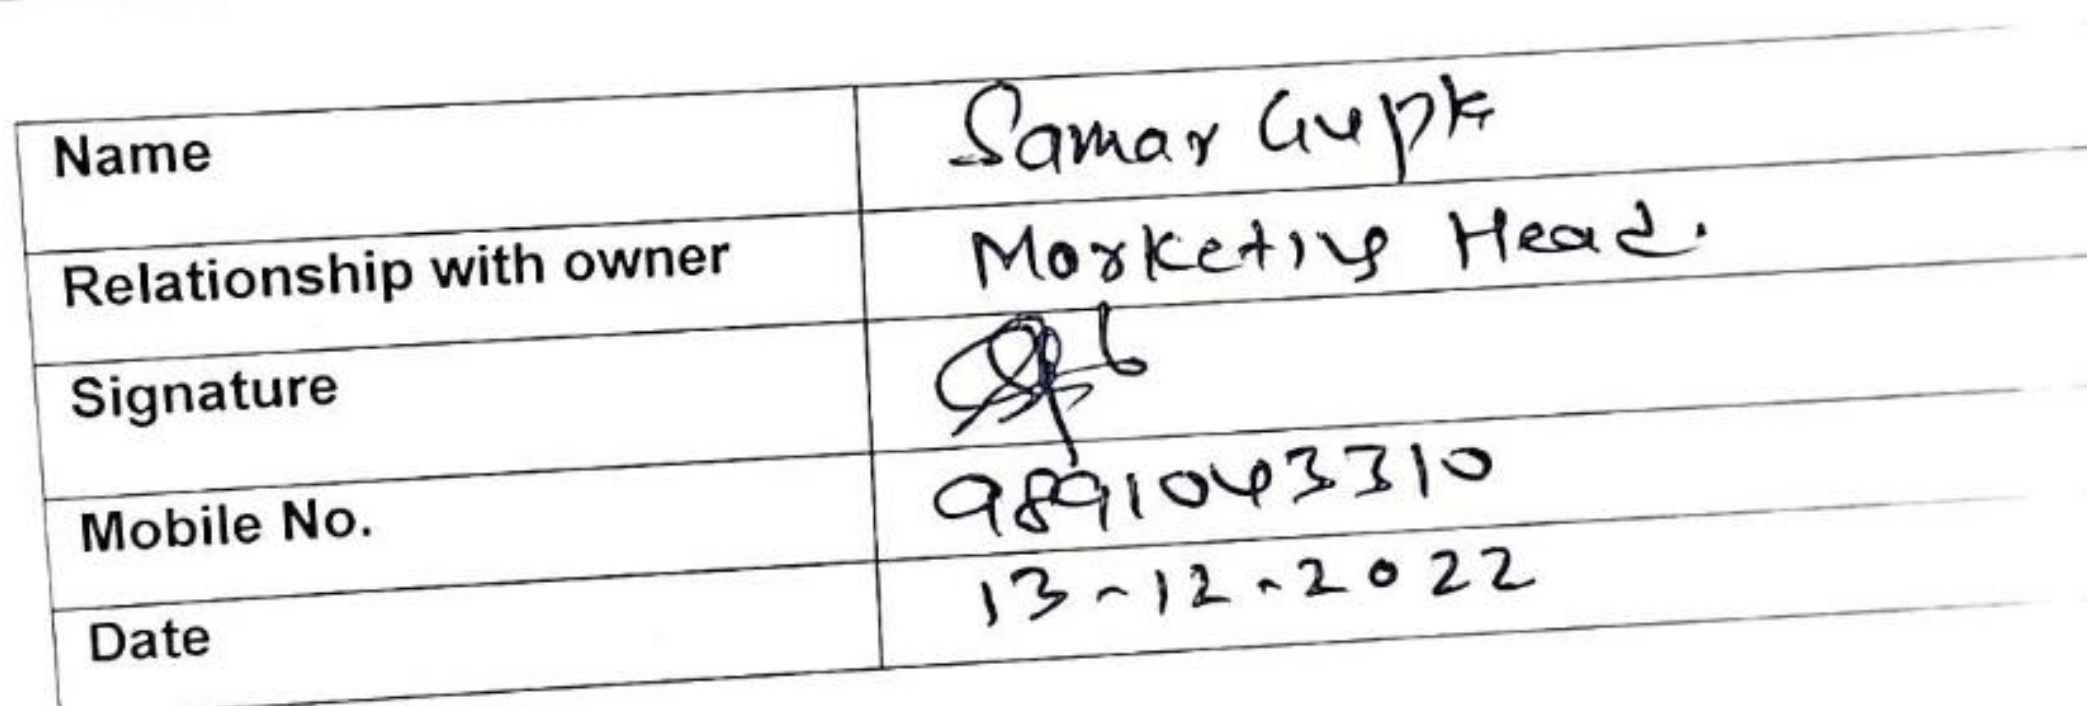 Name Samar Gupta
Relationship with owner Marketing Head.
Signature
Mobile No. 9891043310
Date 13-12-2022